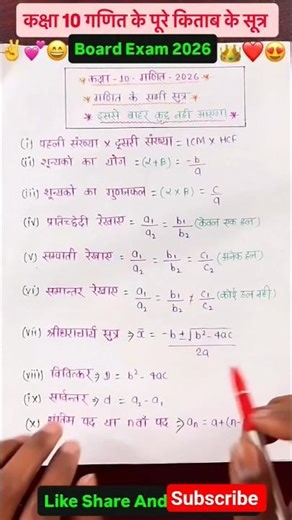 कक्षा 10 गणित के पूरे किताब के सूत्र
Board Exam 2026
कक्षा - 10 - गणित - 2026
गणित के सभी सूत्र
इससे बाहर कुछ नहीं आएगा
(i) पहली संख्या × दूसरी संख्या = LCM × HCF
(ii) शून्यकों का योग = (α+β) = -b/a
(iii) शून्यकों का गुणनफल = (α×β) = c/a
(iv) प्रतिच्छेदी रेखाए = a₁/a₂ = b₁/b₂ (केवल एक हल)
(v) सम्पाती रेखाए = a₁/a₂ = b₁/b₂ = c₁/c₂ (अनेक हल)
(vi) समान्तर रेखाए = a₁/a₂ = b₁/b₂ ≠ c₁/c₂ (कोई हल नहीं)
(vii) श्रीधराचार्य सुत्र ⇒ x = -b±√b²-4ac/2a
(viii) विविक्तकर ⇒ D = b² - 4ac
(ix) सार्वन्तर ⇒ d = a₂ - a₁
(x) अंतिम पद या nवाँ पद ⇒ aₙ = a+(n-
Like Share And Subscribe